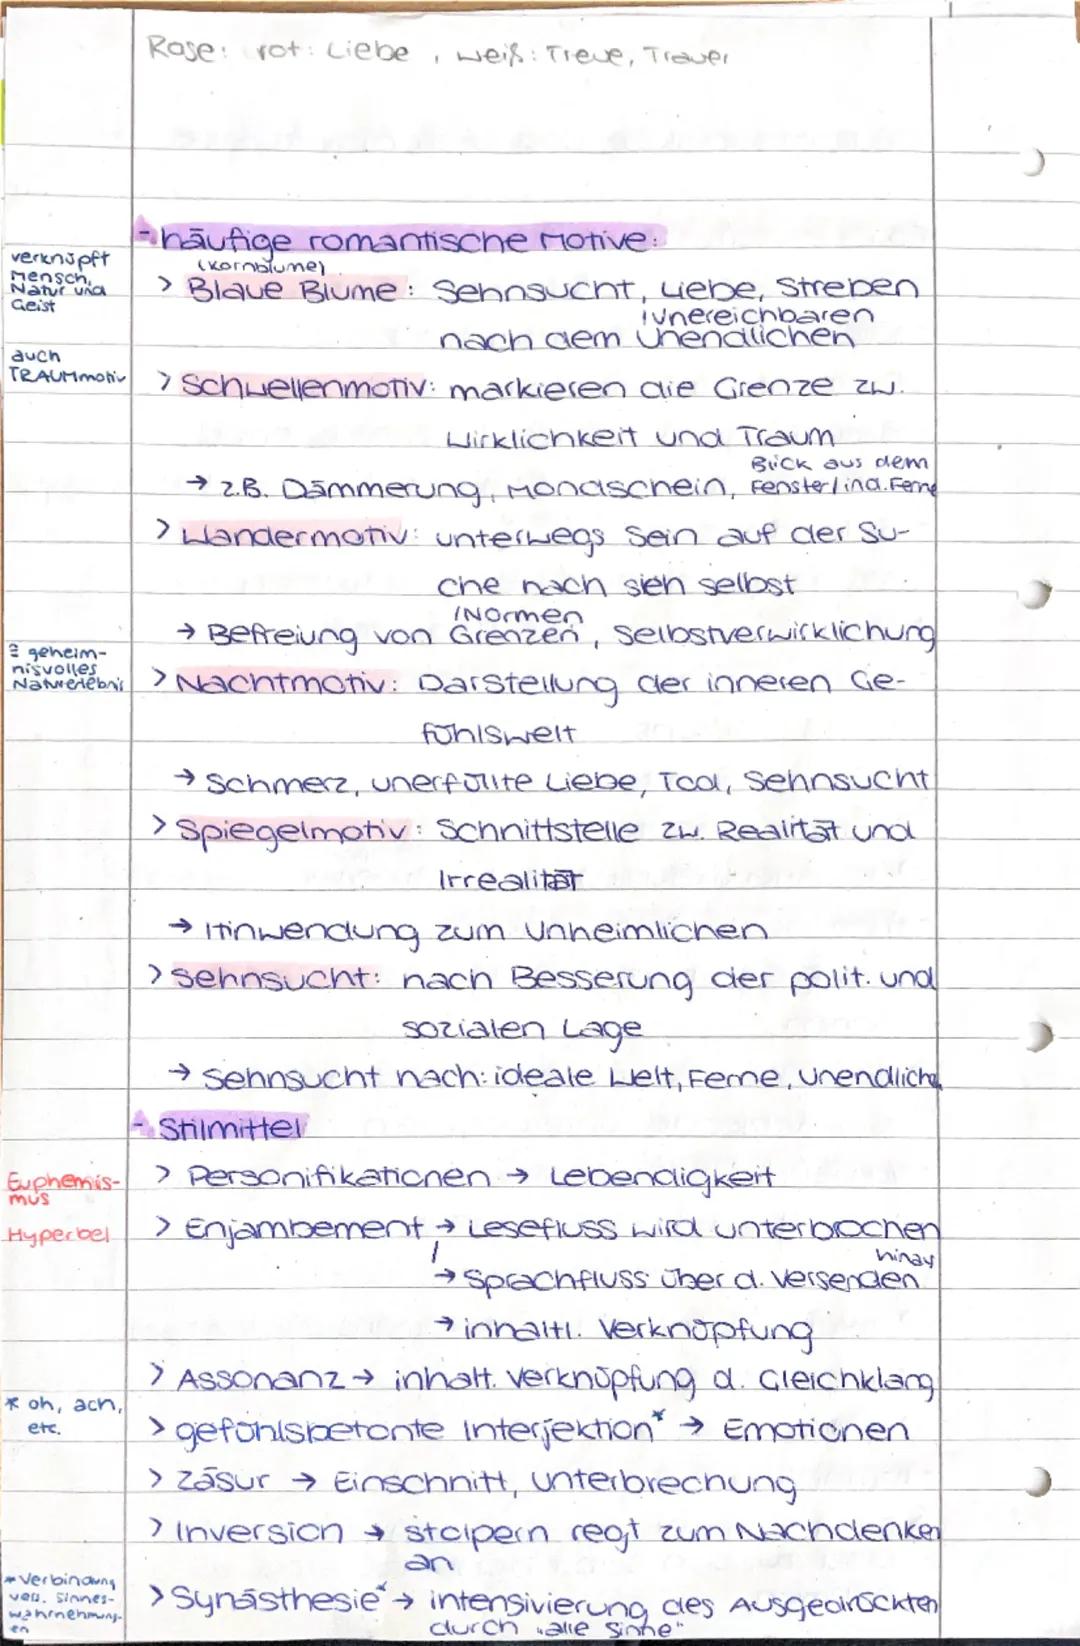 Rose: rot: Liebe, weiß: Treue, Trauer
- häufige romantische Motive:
verknüpft Mensch, Natur und Geist
(Kornblume)
> Blaue Blume: Sehnsucht, Liebe, Streben
/unereichbaren
nach dem Unendlichen
auch TRAUMmotiv
> Schwellenmotiv: markieren die Grenze zw.
Wirklichkeit und Traum
Blick aus dem
→ z.B. Dämmerung, Mondschein, Fenster/ in d. Ferne
> Wandermotiv: unterwegs sein auf der Su-
che nach sich selbst
/Normen
→ Befreiung von Grenzen, Selbstverwirklichung
≙ geheim-
nisvolles
Naturerlebnis
> Nachtmotiv: Darstellung der inneren Ge-
fühlswelt
→ Schmerz, unerfüllte Liebe, Tod, Sehnsucht
> Spiegelmotiv: Schnittstelle zw. Realität und
Irrealität
→ Hinwendung zum Unheimlichen
> Sehnsucht: nach Besserung der polit. und
sozialen Lage
→ Sehnsucht nach: ideale Welt, Ferne, Unendliche
- Stilmittel
> Personifikationen → Lebendigkeit
Euphemis-
mus
Hyperbel
> Enjambement → Lesefluss wird unterbrochen
hinaus
/ → Sprachfluss über d. Versenden
→ inhaltl. Verknüpfung
> Assonanz → inhalt. Verknüpfung d. Gleichklang
* oh, ach,
etc.
> gefühlsbetonte Interjektion* → Emotionen
> Zäsur → Einschnitt, Unterbrechung
> Inversion → stolpern regt zum Nachdenken
an
* Verbindung
vers. Sinnes-
wahrnehmung-
en
> Synästhesie* → intensivierung des Ausgedrückten
durch "alle Sinne"